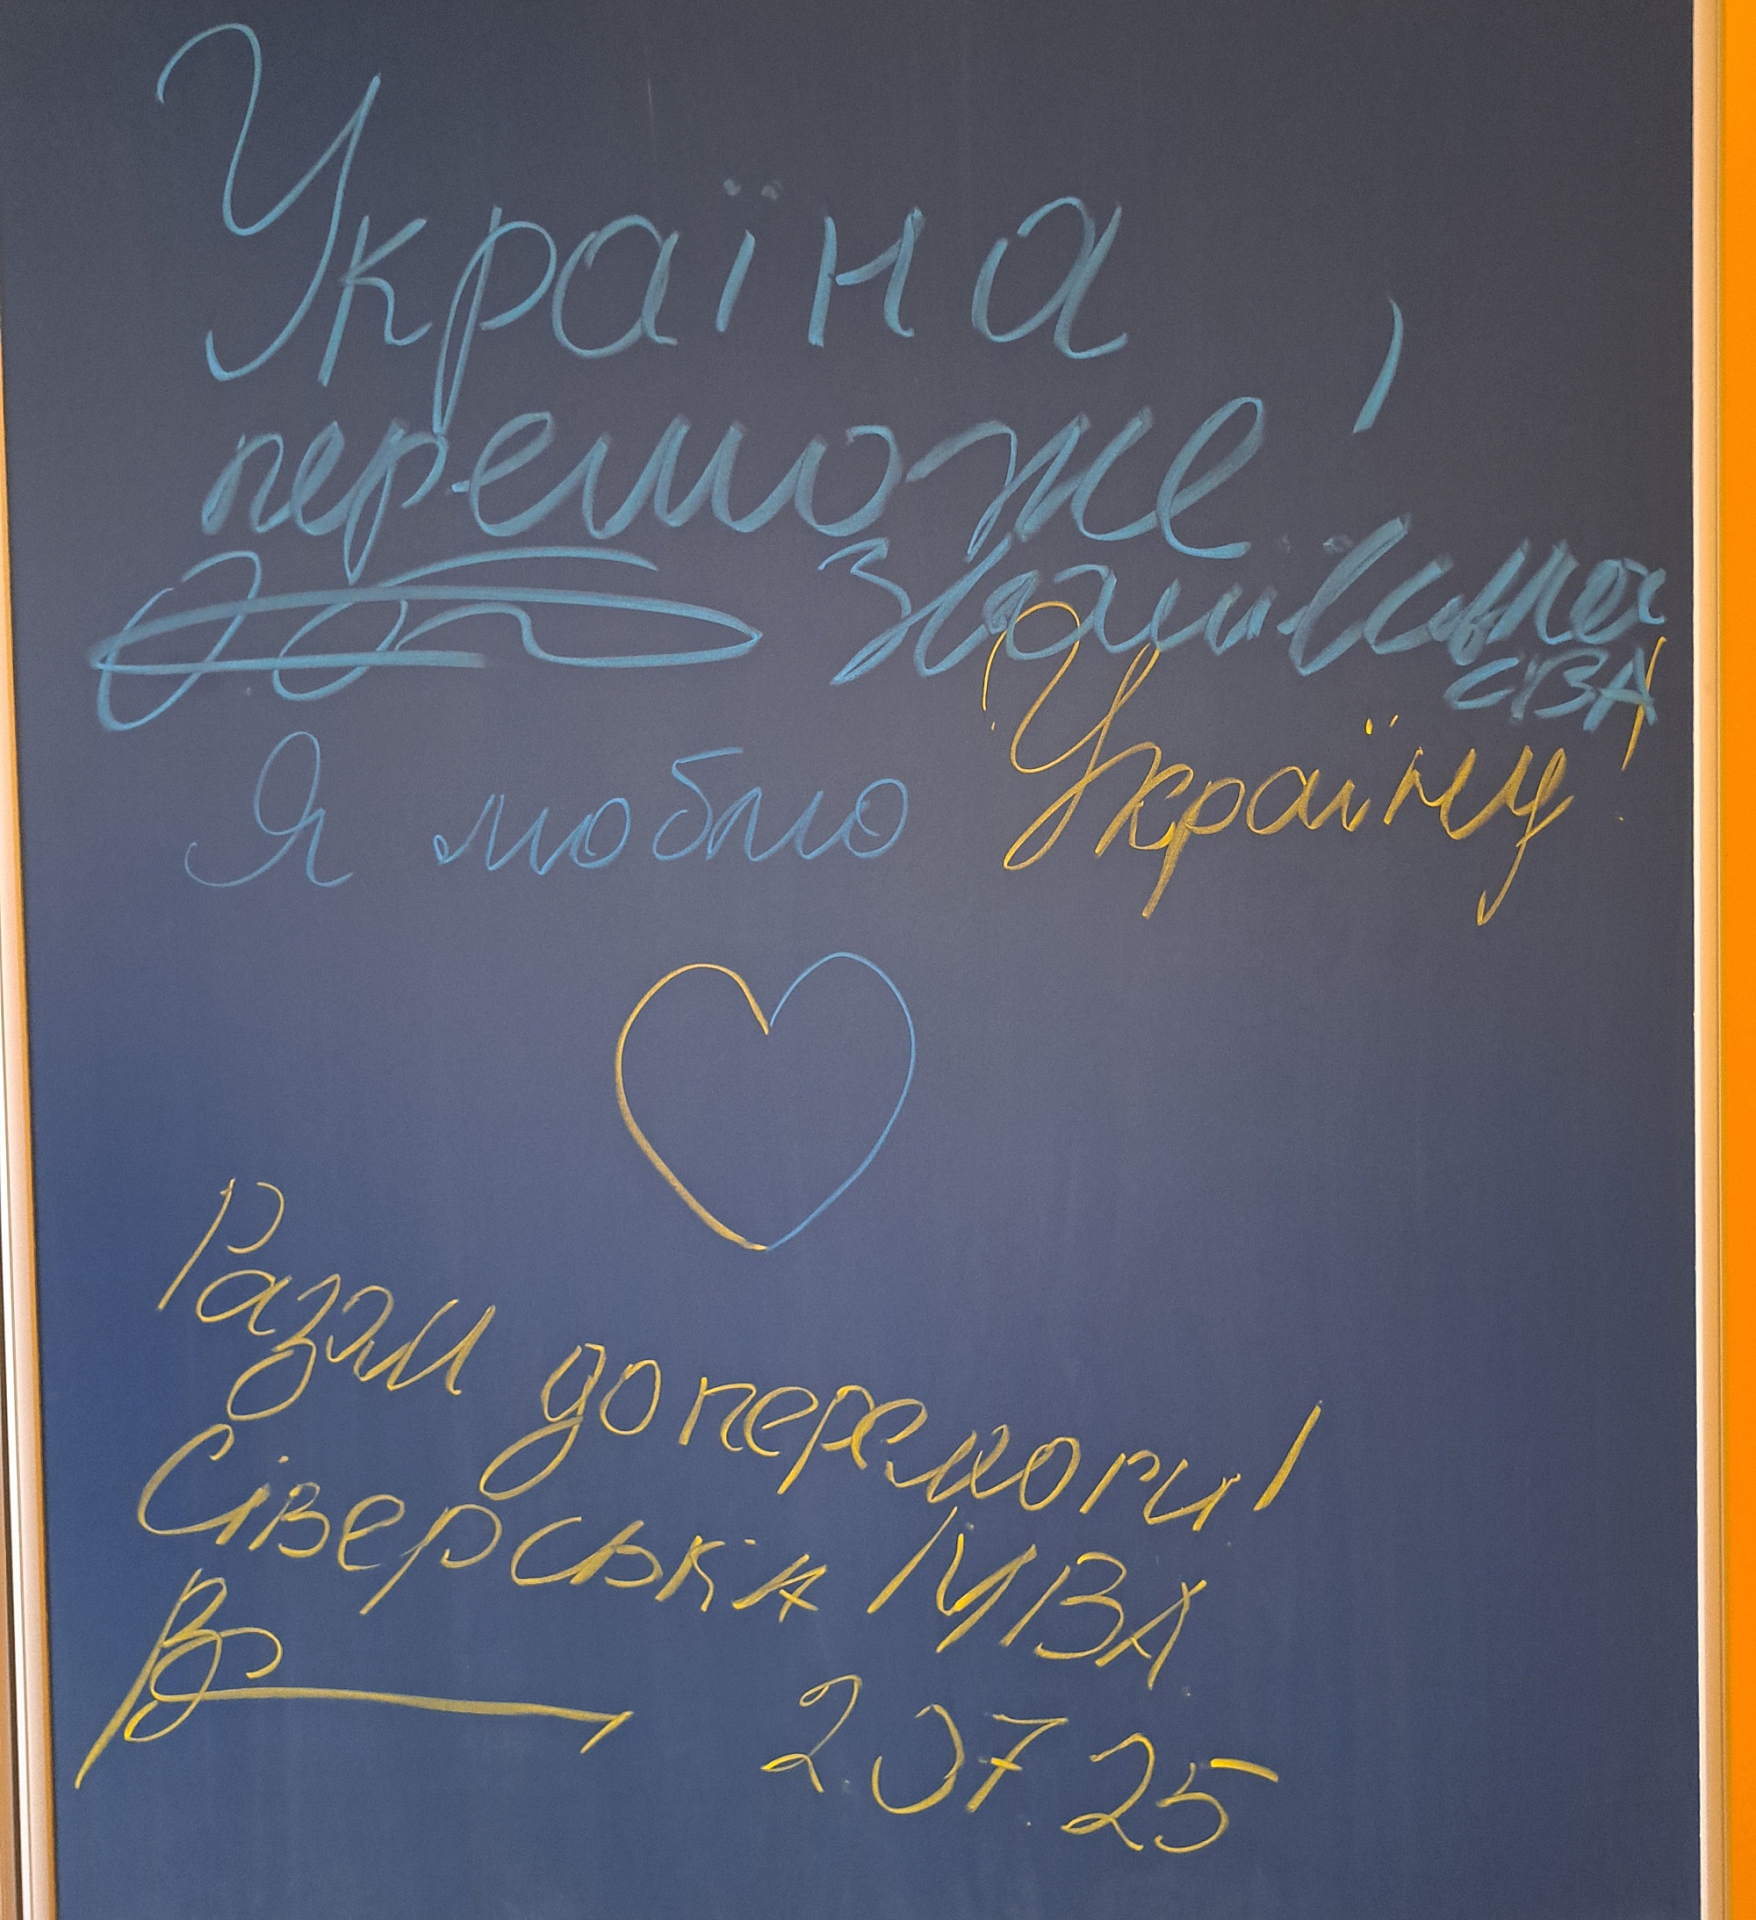 Україна
переможе!
СВА
Я люблю Україну!
Разом до перемоги!
Сіверська МВА
2.07.25